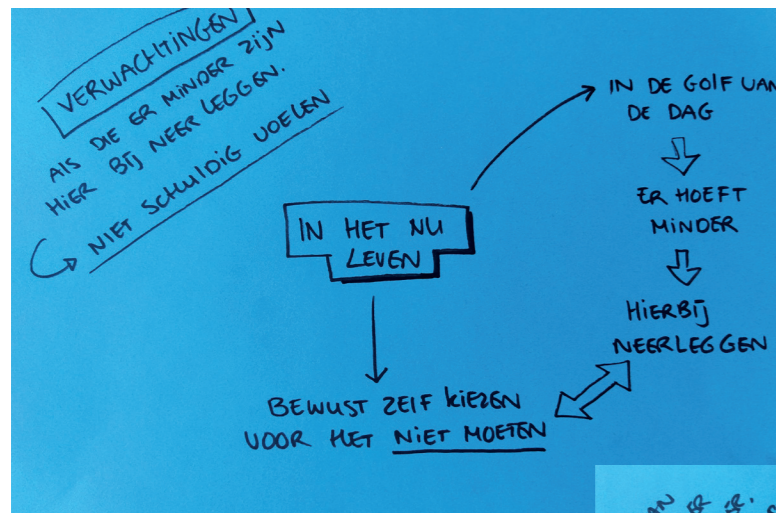 VERWACHTINGEN
ALS DIE ER MINDER ZIJN
HIER BIJ NEER LEGGEN.
NIET SCHULDIG VOELEN
IN HET NU
LEVEN
IN DE GOLF VAN
DE DAG
ER HOEFT
MINDER
HIERBIJ
NEERLEGGEN
BEWUST ZELF KIEZEN
VOOR HET NIET MOETEN